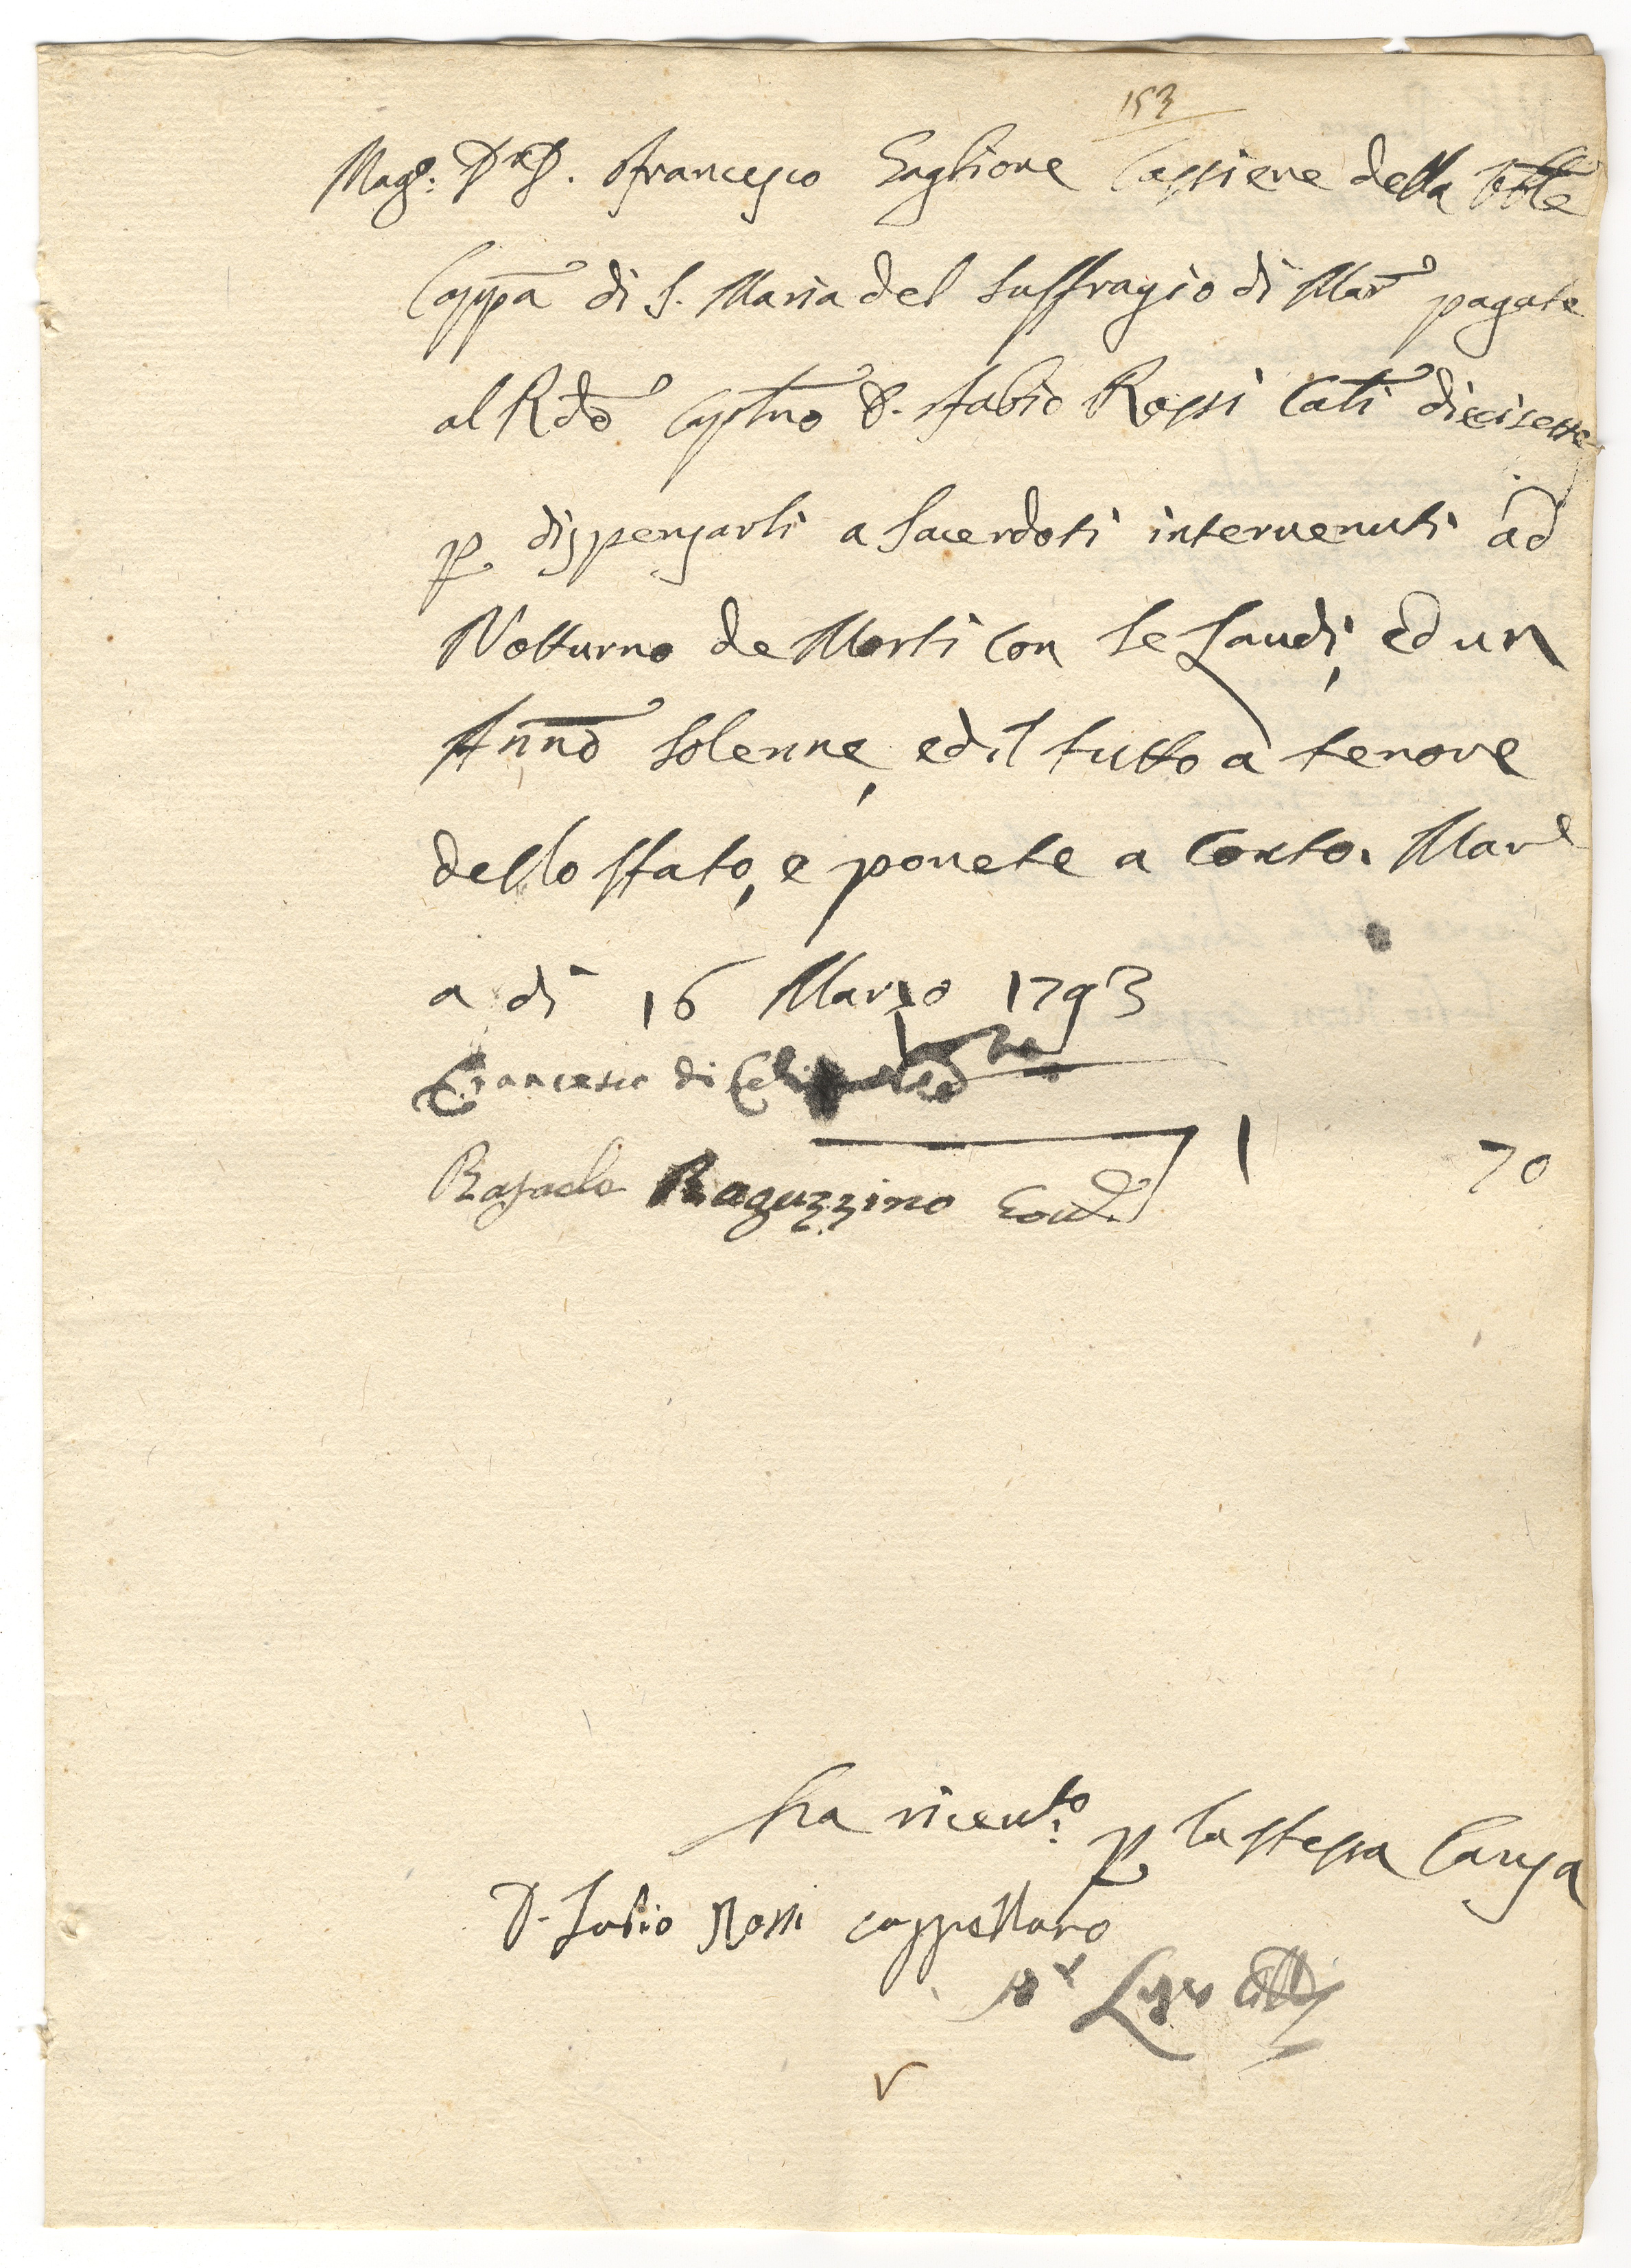 153
Mag.: Francesco Saglione Cassiere della
Cappa di S. Maria del Suffragio di Mar pagate
al Rdo D. Fabio Rossi Cati diecisette
p. dispensarli a Sacerdoti intervenuti ad
Notturno de Morti con le Laudi, ed un
Anno solenne, ed il tutto a tenore
dello stato, e ponete a conto. Mar
a di 16 Marzo 1793
Francesco di
Rafaele Raguzzino 1 70
ha ricevuto p. la stessa Causa
D. Fabio Rossi cappellano